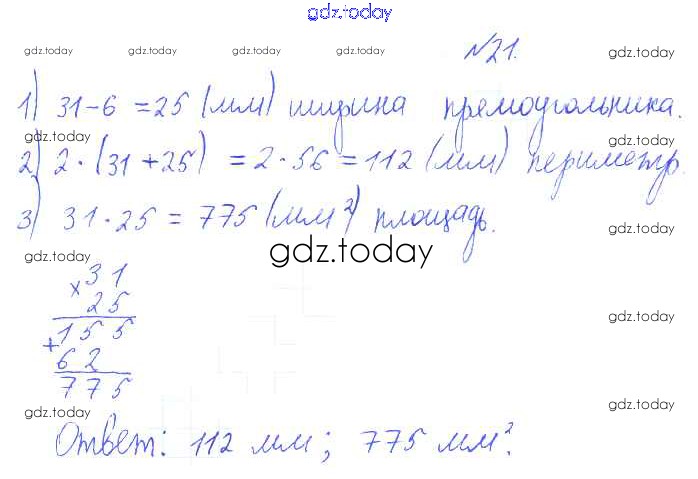 gdz.today
№21.
gdz.today gdz.today gdz.today gdz.today
1) 31-6 = 25 (мм) ширина прямоугольника.
gdz.today gdz.today
2) 2 · (31 + 25) = 2 · 56 = 112 (мм) периметр.
gdz.today
3) 31 · 25 = 775 (мм²) площадь.
gdz.today gdz.today gdz.today
× 31
25
gdz.today
155
+
62
775
gdz.today gdz.today
Ответ: 112 мм; 775 мм².